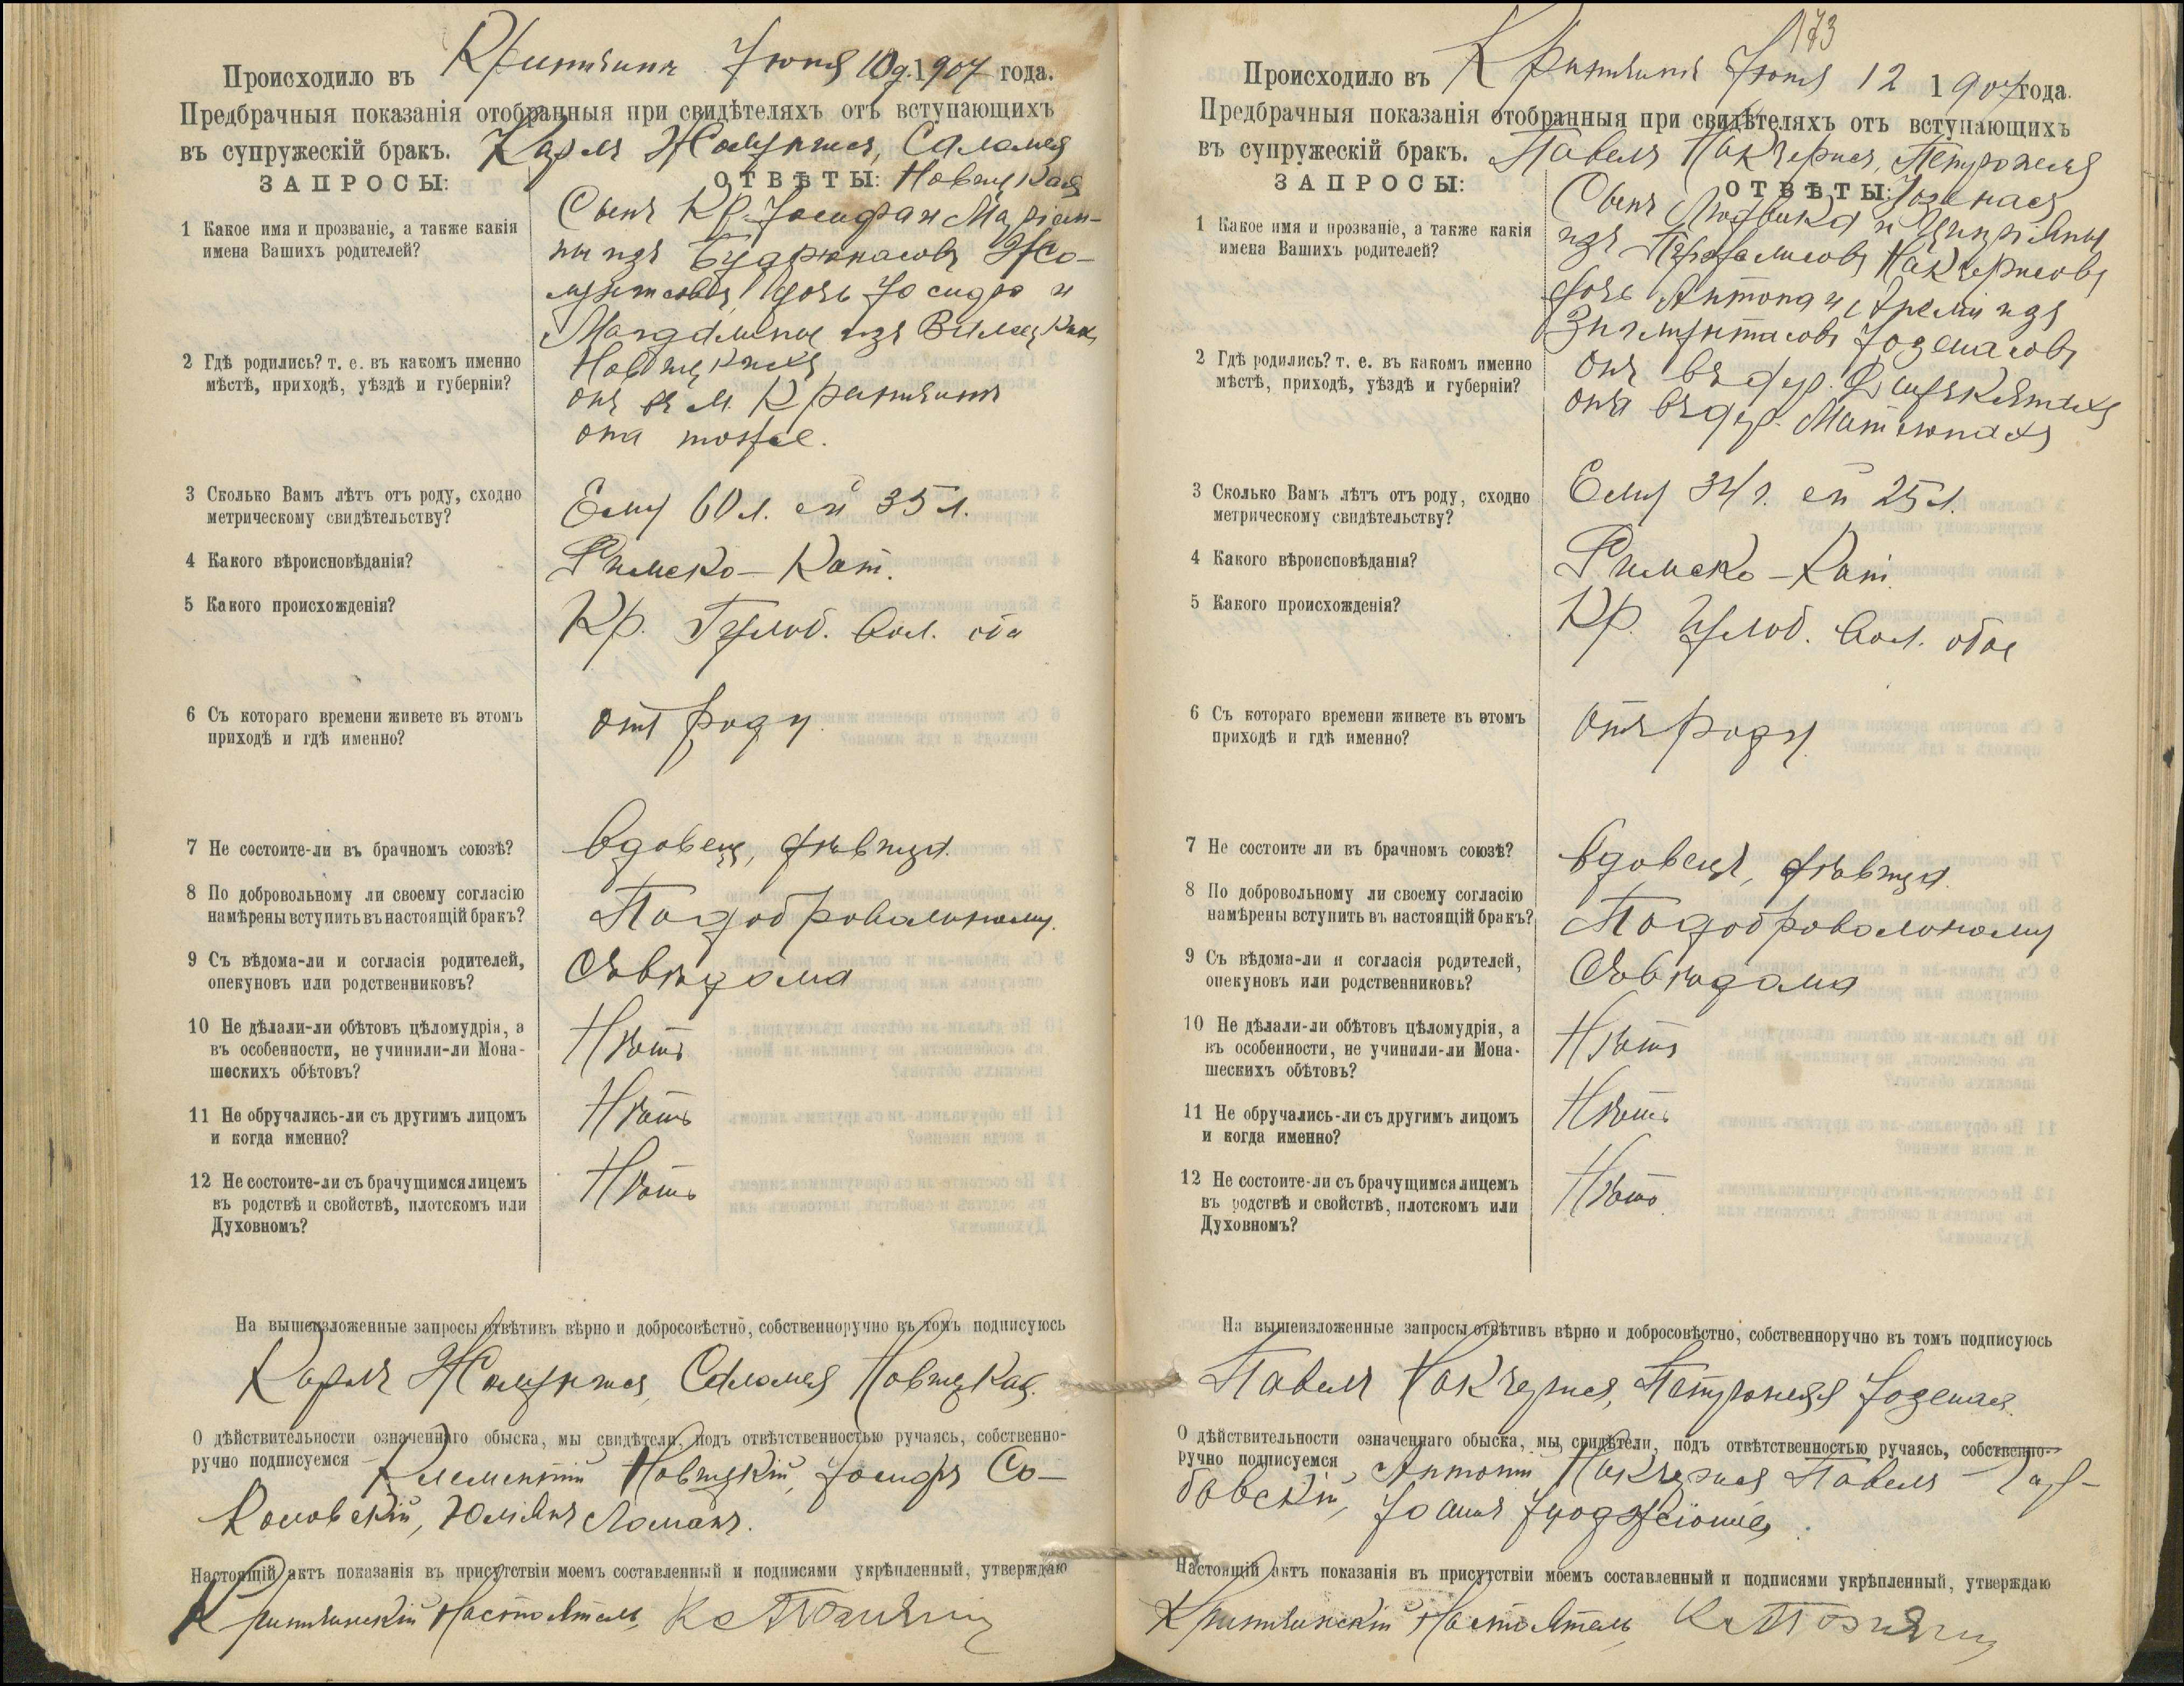 Происходило въ Криштянтъ Іюня 10 д. 1907 года.
Предбрачныя показанія отобранныя при свидѣтеляхъ отъ вступающихъ
въ супружескій бракъ. Карлъ Саломея
ЗАПРОСЫ: ОТВѢТЫ: Новицкая
1 Какое имя и прозваніе, а также какія
имена Вашихъ родителей?
Сынъ Кр. Іосифа и Маріан-
ны изъ Жо-
дочь Іосифа и
Магдалины изъ
2 Гдѣ родились? т. е. въ какомъ именно
мѣстѣ, приходѣ, уѣздѣ и губерніи?
Новицкихъ
онъ въ м.
она тоже.
3 Сколько Вамъ лѣтъ отъ роду, сходно
метрическому свидѣтельству?
Ему 60 л. ей 35 л.
4 Какого вѣроисповѣданія?
Римско-Кат.
5 Какого происхожденія?
Кр. вол. оба
6 Съ котораго времени живете въ этомъ
приходѣ и гдѣ именно?
Отъ роду.
7 Не состоите-ли въ брачномъ союзѣ?
Вдовецъ, дѣвица.
8 По добровольному ли своему согласію
намѣрены вступить въ настоящій бракъ?
По добровольному.
9 Съ вѣдома-ли и согласія родителей,
опекуновъ или родственниковъ?
Съ вѣдома
10 Не дѣлали-ли обѣтовъ цѣломудрія, а
въ особенности, не учинили-ли Мона-
шескихъ обѣтовъ?
Нѣтъ
11 Не обручались-ли съ другимъ лицомъ
и когда именно?
Нѣтъ
12 Не состоите-ли съ брачущимся лицемъ
въ родствѣ и свойствѣ, плотскомъ или
Духовномъ?
Нѣтъ
На вышеизложенные запросы отвѣтивъ вѣрно и добросовѣстно, собственноручно въ томъ подписуюсь
Карлъ Саломея Новицкая.
О дѣйствительности означеннаго обыска, мы свидѣтели, подъ отвѣтственностью ручаясь, собственно-
ручно подписуемся Клементій Новицкій, Іосифъ Со-
коловскій, Юліянъ Ломанъ.
Настоящій актъ показанія въ присутствіи моемъ составленный и подписами укрѣпленный, утверждаю
Настоятель
173
Происходило въ Іюня 12 1907 года.
Предбрачныя показанія отобранныя при свидѣтеляхъ отъ вступающихъ
въ супружескій бракъ. Павелъ Петронеля
ЗАПРОСЫ: ОТВѢТЫ:
1 Какое имя и прозваніе, а также какія
имена Вашихъ родителей?
Сынъ Людвика и
изъ
дочь Антона и изъ
2 Гдѣ родились? т. е. въ какомъ именно
мѣстѣ, приходѣ, уѣздѣ и губерніи?
онъ въ дер.
она въ дер.
3 Сколько Вамъ лѣтъ отъ роду, сходно
метрическому свидѣтельству?
Ему 34 г. ей 25 л.
4 Какого вѣроисповѣданія?
Римско-Кат.
5 Какого происхожденія?
Кр. вол. обое
6 Съ котораго времени живете въ этомъ
приходѣ и гдѣ именно?
Отъ роду.
7 Не состоите ли въ брачномъ союзѣ?
Вдовецъ, дѣвица.
8 По добровольному ли своему согласію
намѣрены вступить въ настоящій бракъ?
По добровольному
9 Съ вѣдома-ли и согласія родителей,
опекуновъ или родственниковъ?
Съ вѣдома
10 Не дѣлали-ли обѣтовъ цѣломудрія, а
въ особенности, не учинили-ли Мона-
шескихъ обѣтовъ?
Нѣтъ
11 Не обручались-ли съ другимъ лицомъ
и когда именно?
Нѣтъ
12 Не состоите-ли съ брачущимся лицемъ
въ родствѣ и свойствѣ, плотскомъ или
Духовномъ?
Нѣтъ.
На вышеизложенные запросы отвѣтивъ вѣрно и добросовѣстно, собственноручно въ томъ подписуюсь
Павелъ Петронеля
О дѣйствительности означеннаго обыска, мы, свидѣтели, подъ отвѣтственностью ручаясь, собственно-
ручно подписуемся Антоній Павелъ
Настоящій актъ показанія въ присутствіи моемъ составленный и подписами укрѣпленный, утверждаю
Настоятель